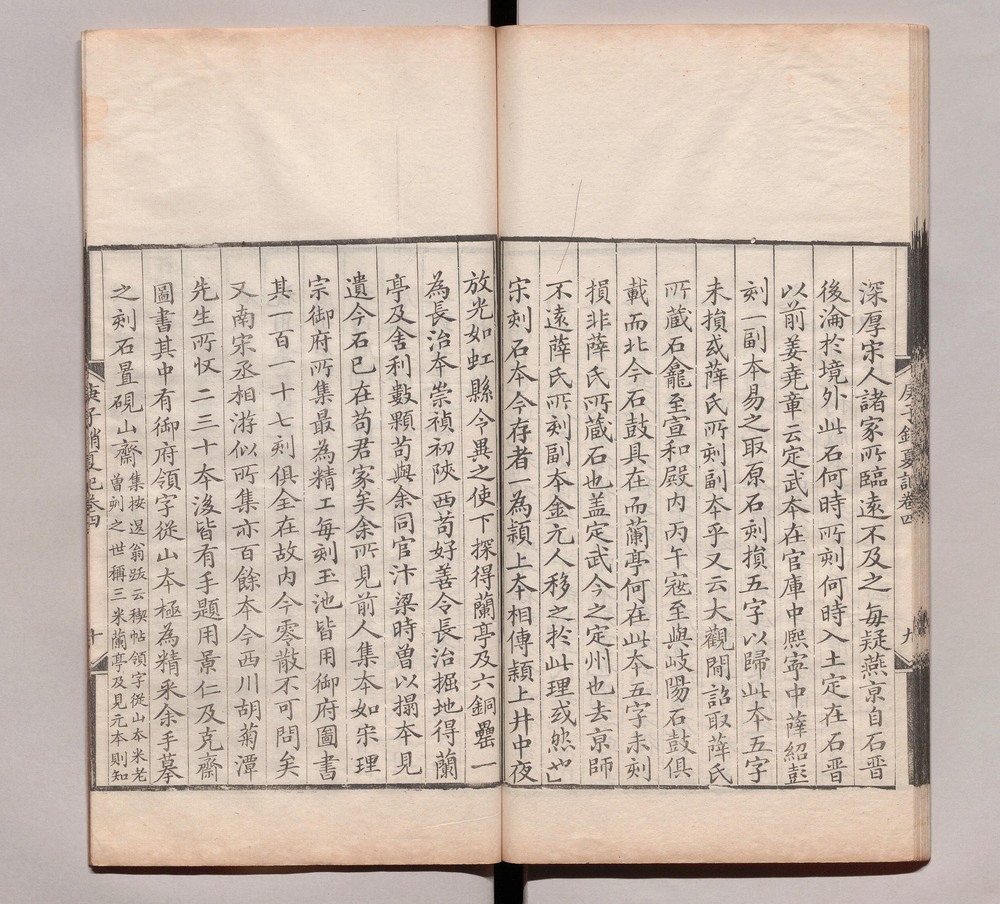 深厚宋人諸家所臨遠不及之每疑燕京自石晋
後淪於境外此石何時所刻何時入土定在石晋
以前姜堯章云定武本在官庫中熈寧中薛紹彭
刻一副本易之取原石刻損五字以歸此本五字
未損或薛氏所刻副本乎又云大觀間詔取薛氏
所藏石龕至宣和殿内丙午寇至與岐陽石鼓俱
載而北今石鼓具在而蘭亭何在此本五字未刻
損非薛氏所蔵石也盖定武今之定州也去京師
不遠薛氏所刻副本金元人移之於此理或然也
宋刻石本今存者一為頴上本相傳頴上井中夜
放光如虹縣令異之使下探得蘭亭及六銅罍一
為長治本崇禎初陜西苟好善令長治掘地得蘭
亭及舍利數顆苟與余同官汴梁時曽以搨本見
遺今石已在苟君家矣余所見前人集本如宋理
宗御府所集最為精工每刻玉池皆用御府圖書
其一百一十七刻俱全在故内今零散不可問矣
又南宋丞相游似所集亦百餘本今西川胡菊潭
先生所収二三十本後皆有手題用景仁及克齋
圖書其中有御府領字從山本極為精采余手摹
之刻石置硯山齋集按退翁跋云禊帖領字從山本米老
曽刻之世稱三米蘭亭及見元本則知
庚子銷夏記卷四
九
庚子銷夏記卷四
十